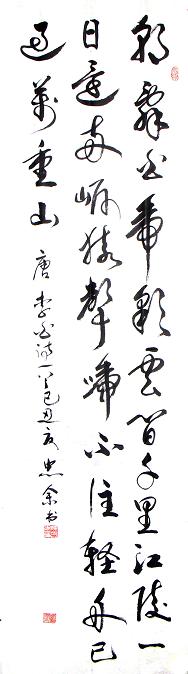 朝辞白帝彩雲间千里江陵一
日還两岸猿聲啼不住軽舟已
過萬重山
唐李白诗一首己丑夏忠余书